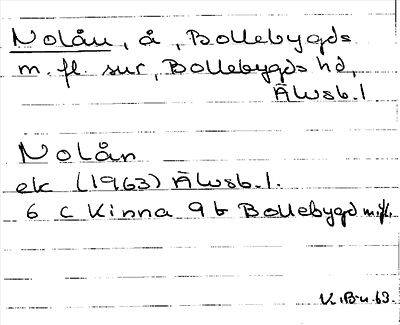 Nolån, å, Bollebygds
m. fl. snr, Bollebygds hd,
Älvsb. l
Nolån
ek (1963) Älvsb. l.
6 C Kinna 9 b Bollebygd m.fl.
K.Bn.63.